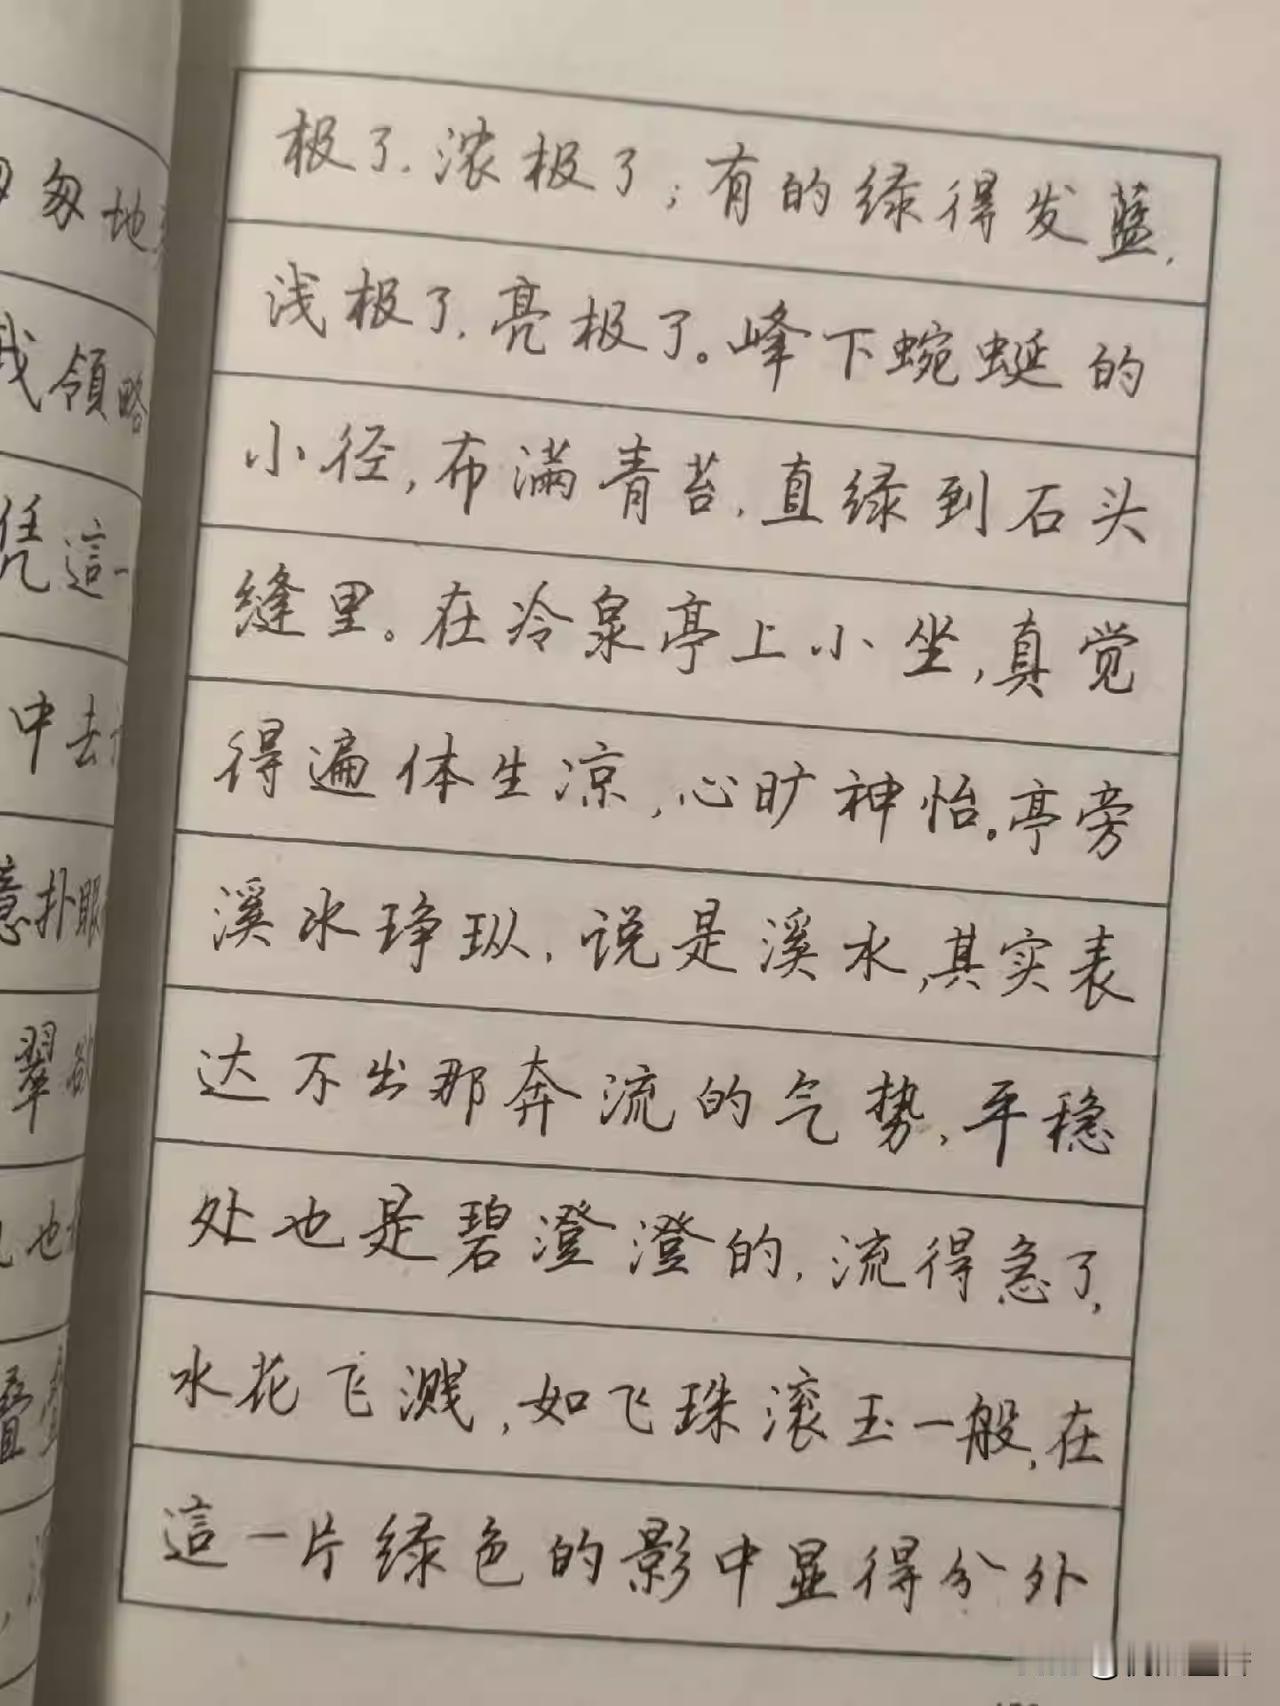 匆地
我領略
凭這一
中去
意扑眼
翠欲
也
叠
极了，浓极了；有的绿得发蓝，
浅极了，亮极了。峰下蜿蜒的
小径，布满青苔，直绿到石头
缝里。在冷泉亭上小坐，真觉
得遍体生凉，心旷神怡。亭旁
溪水琤瑽，说是溪水，其实表
达不出那奔流的气势，平稳
处也是碧澄澄的，流得急了，
水花飞溅，如飞珠滚玉一般，在
這一片绿色的影中显得分外